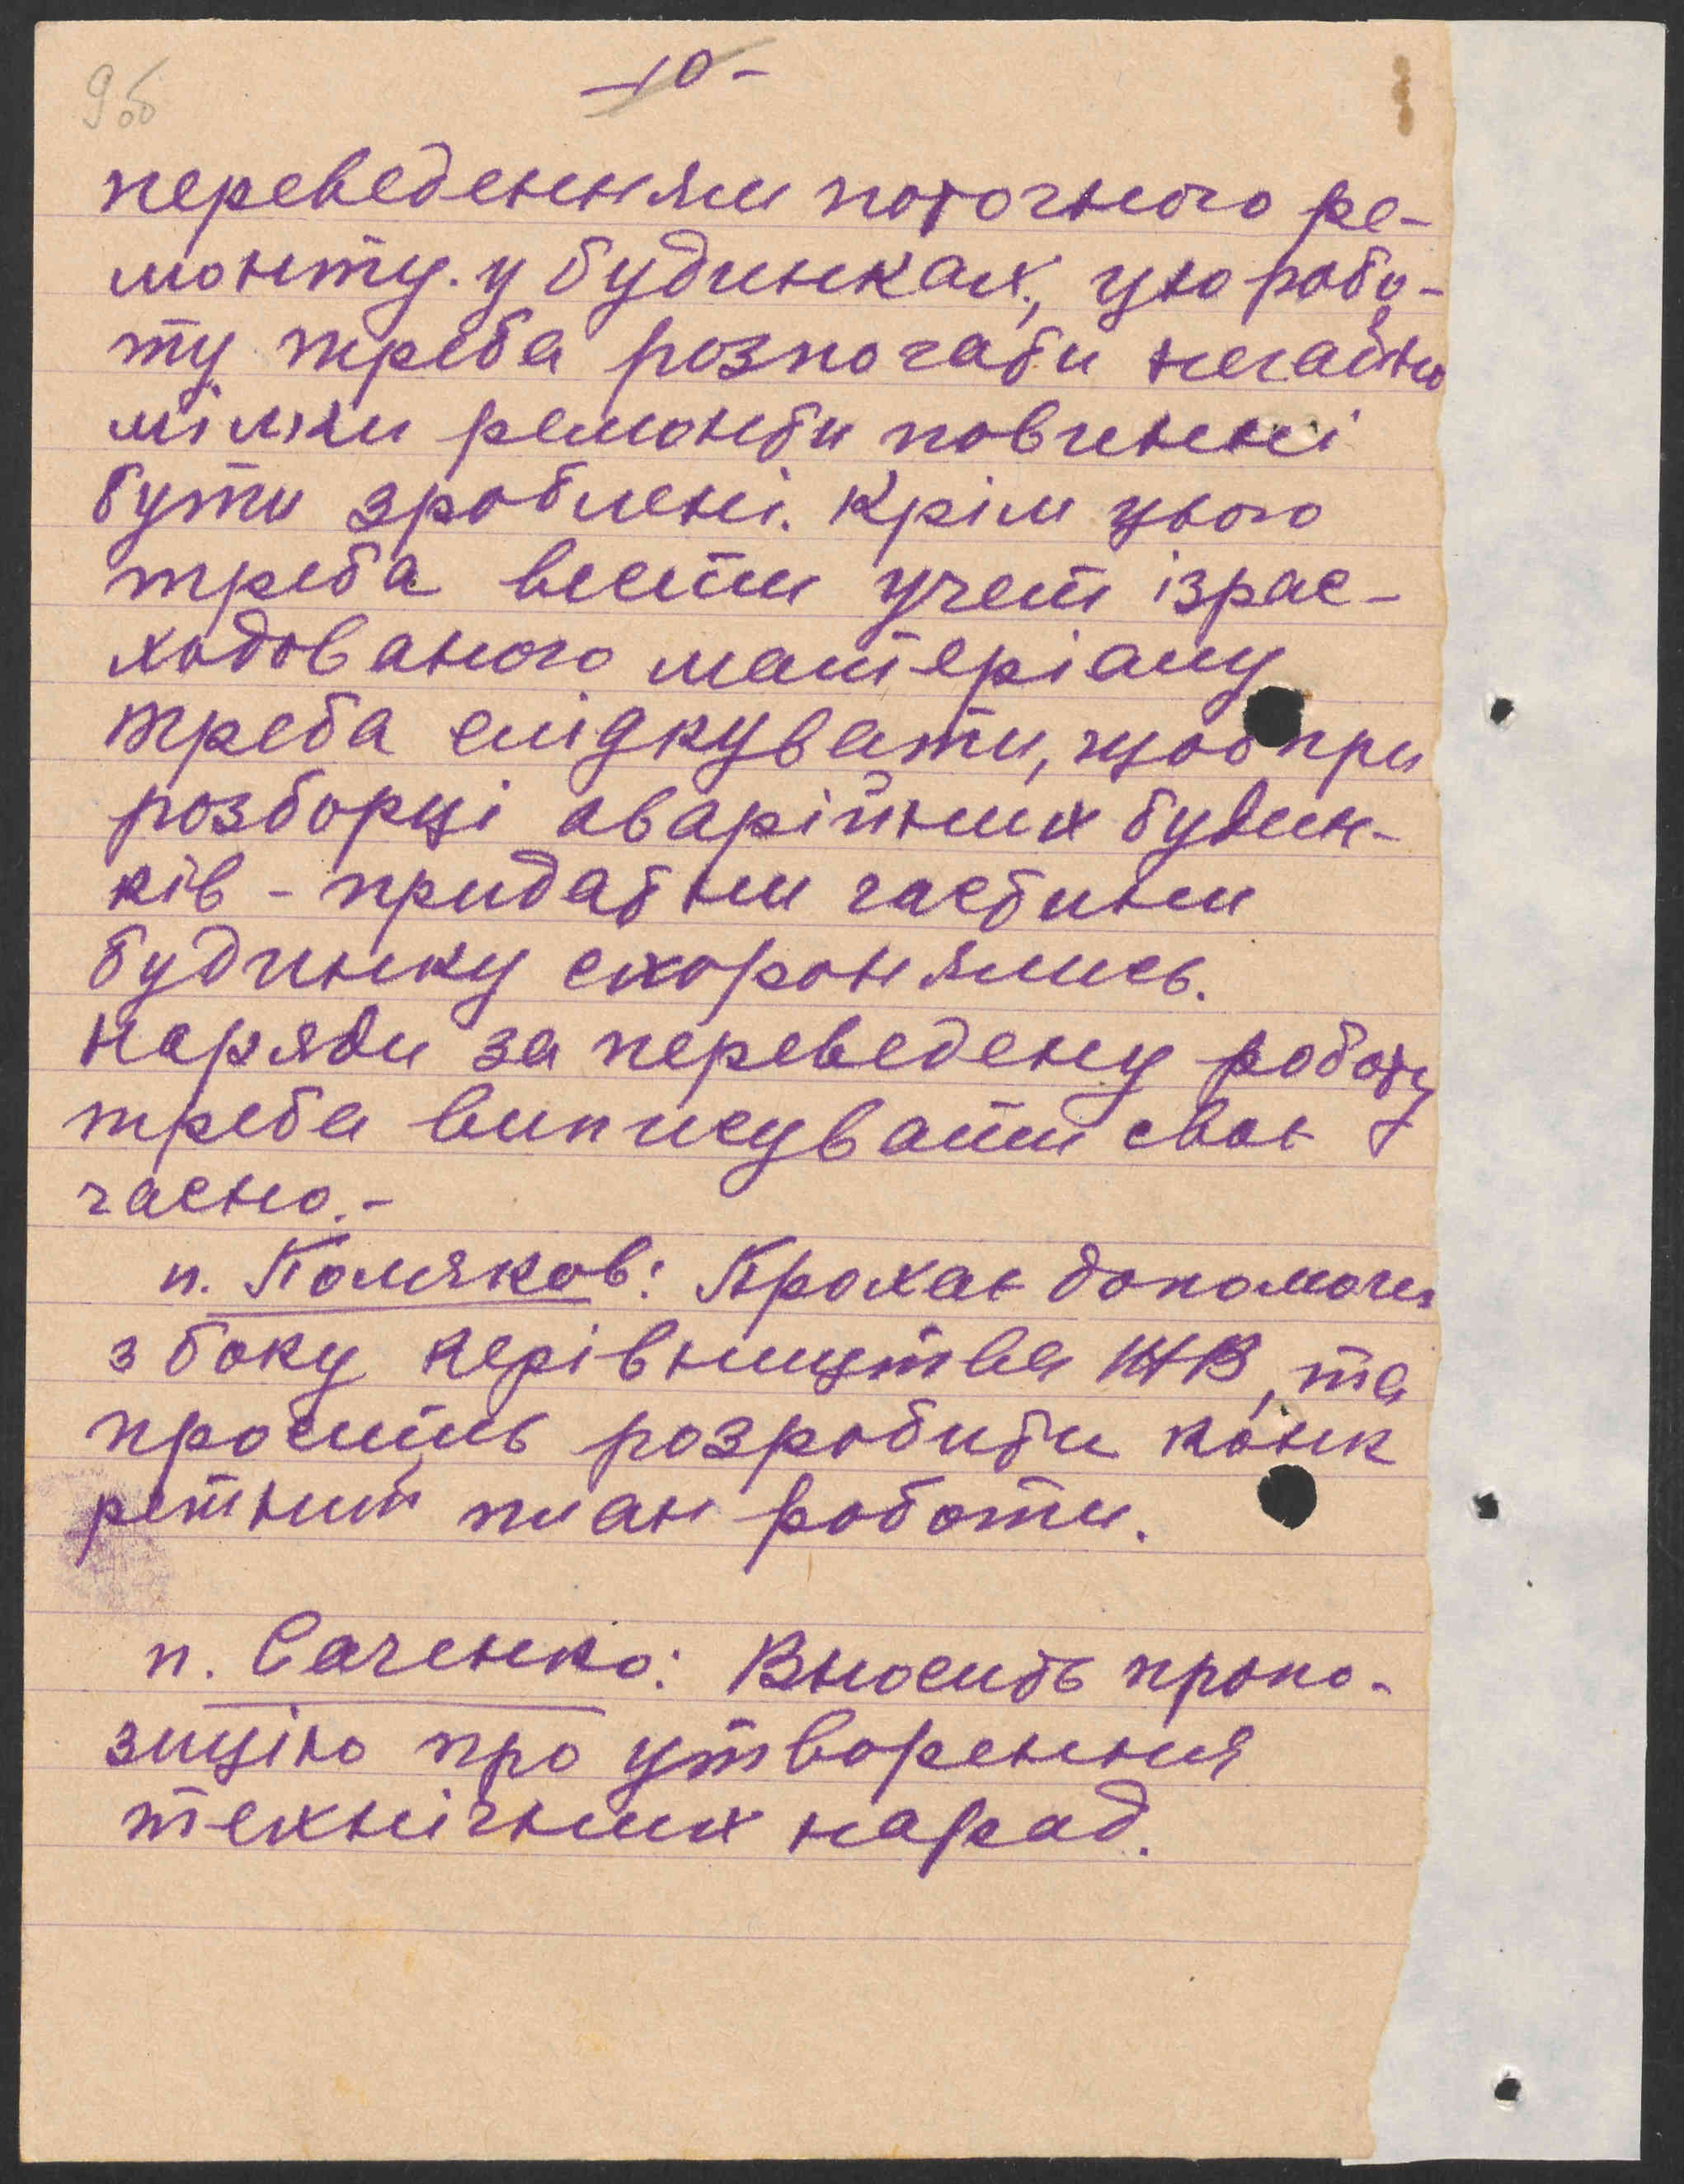 9об
-10-
переведенням поточного ре-
монту. у будинках, цю робо-
ту треба розпочати негайно
мілки ремонти повинні
бути зроблені. Крім цього
треба вести учет ізрас-
ходованого матеріалу
треба слідкувати, щоб при
розборці аварійних будин-
ків - придатни частини
будинку схоронялись.
Наряди за переведену роботу
треба виписувати своє
часно.-
п. Поляков: Прохає допомоги
з боку керівництва ЖВ, та
просить розробити конк
ретний план роботи.
п. Саченко: Вносить пропо-
зицію про утворення
технічних нарад.